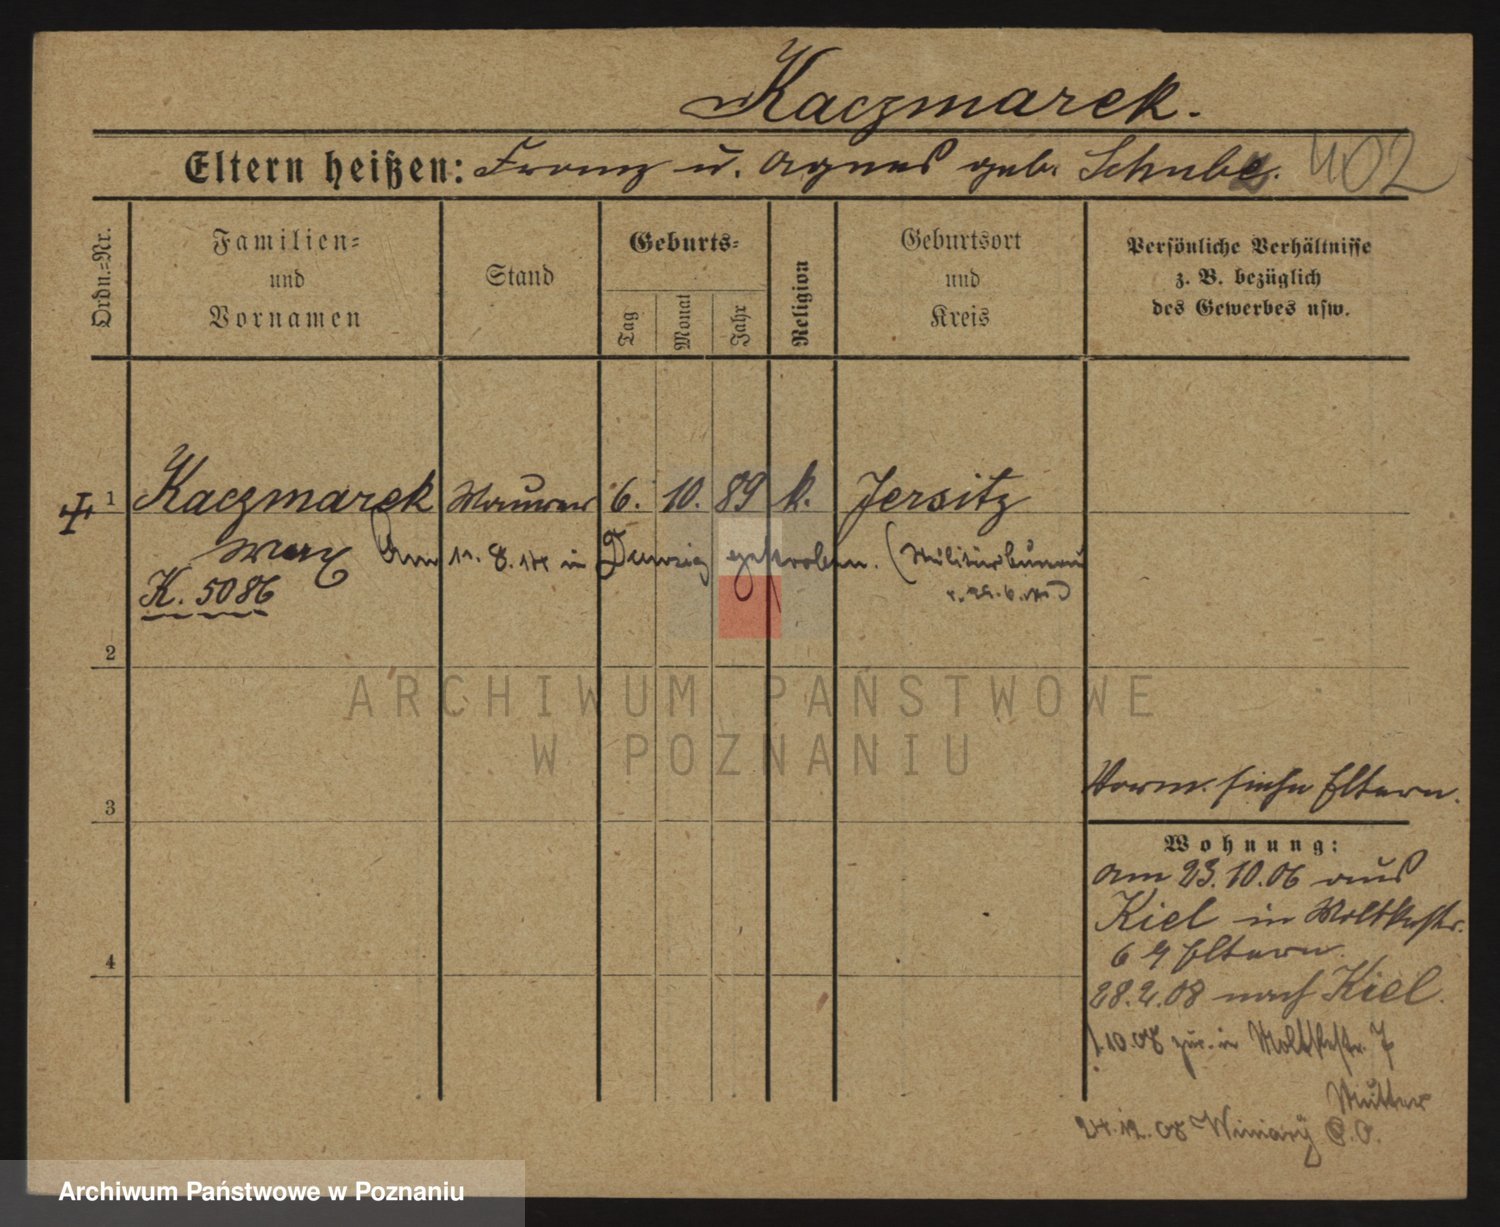 Kaczmarek.
Eltern heißen: Franz u. Agnes geb. Schube. 402
Ordn.=Nr.
Familien=
und
Vornamen
Stand
Geburts=
Tag
Monat
Jahr
Religion
Geburtsort
und
Kreis
Persönliche Verhältnisse
z. B. bezüglich
des Gewerbes usw.
1 Kaczmarek Maurer 6. 10. 89 k. Jersitz
Max Am 11. 8. 14 in Danzig gestorben. (Militärbureau
K. 5086
2
ARCHIWUM PAŃSTWOWE
W POZNANIU
3
4
Vorm. siehe Eltern.
Wohnung:
am 23.10.06 aus
Kiel in Moltkestr.
6 Eltern.
28.2.08 nach Kiel.
1.10.08 zur. in Moltkestr. 7
Mutter
24.12.08 Winiary
Archiwum Państwowe w Poznaniu